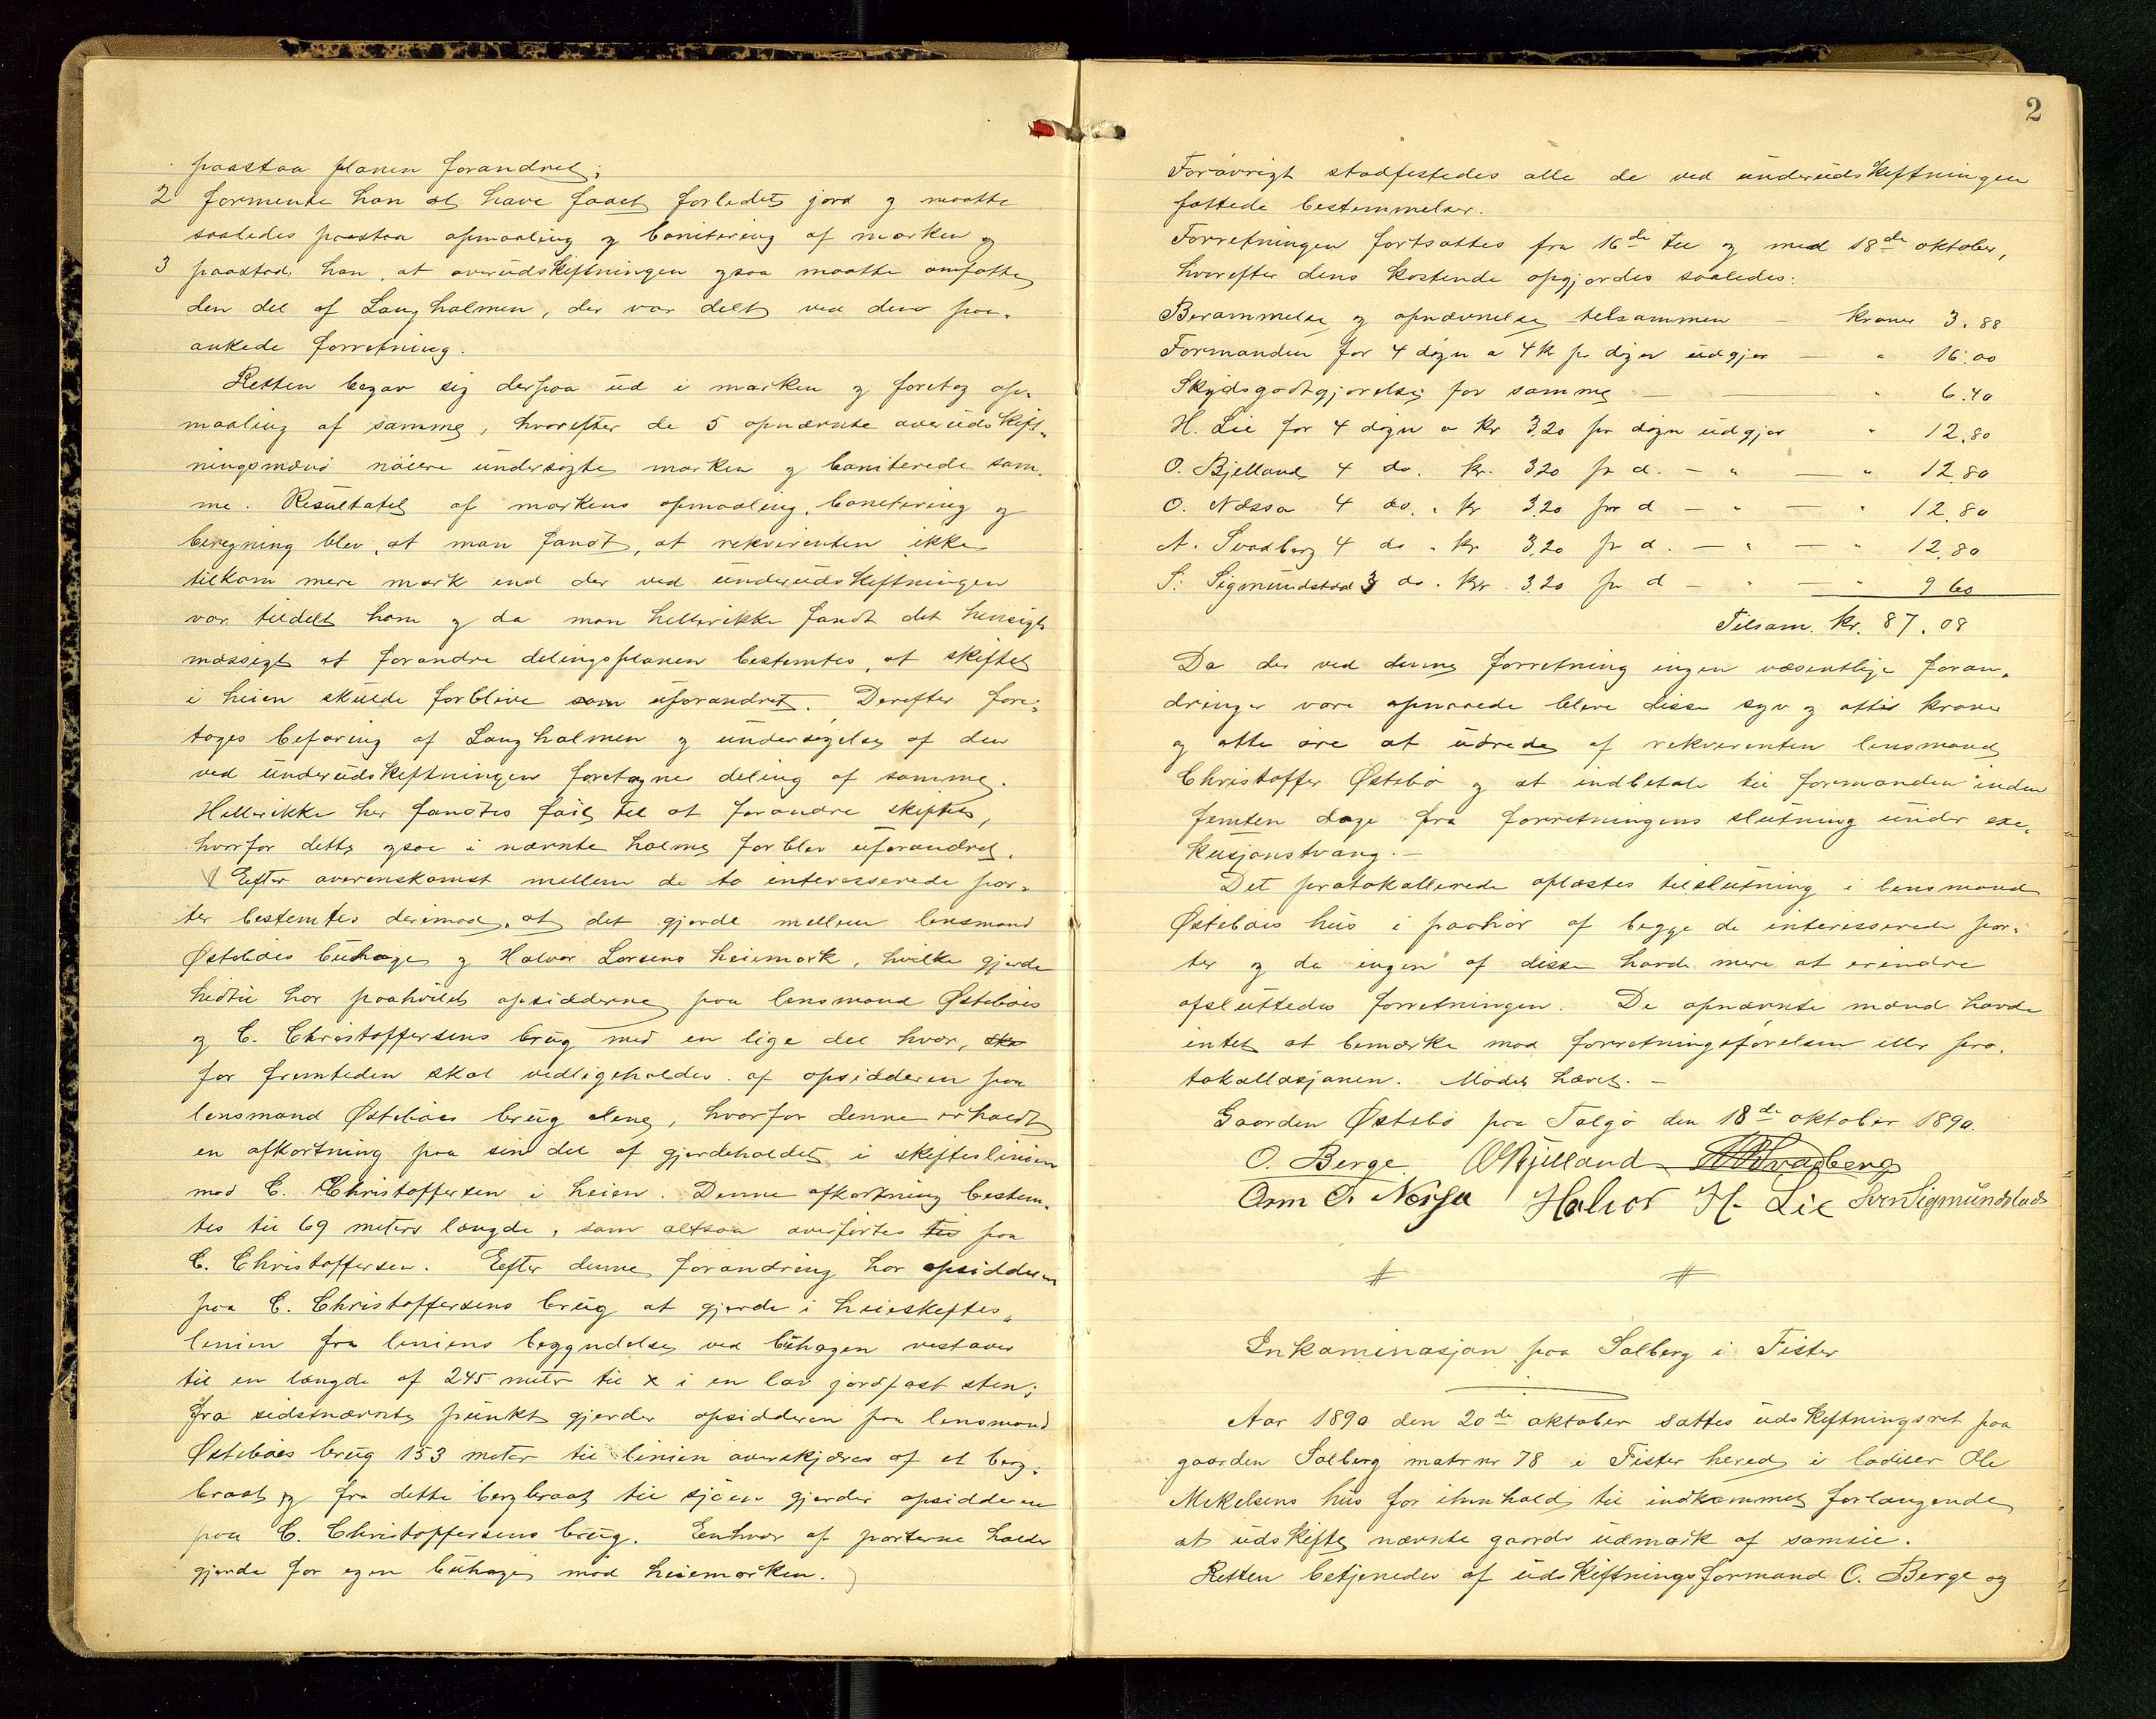 paastaa planen forandret;
2 formente han at have faaet forlidet jord og maatte
saaledes paastaa opmaaling og bonitering af marken og
3 paastod han, at overudskiftningen ogsaa maatte omfatte
den del af Langholmen, der var delt ved den paa-
ankede forretning.
Retten begav sig derpaa ud i marken og foretog op-
maaling af samme, hvorefter de 5 opnævnte overudskift-
ningsmænd nöiere undersögte marken og boniterede sam-
me. Resultatet af markens opmaaling, bonitering og
beregning blev, at man fandt, at rekvirenten ikke
tilkom mere mark end der ved underudskiftningen
var tildelt ham og da man hellerikke fandt det hensigts
mæssigt at forandre delingsplanen bestemtes, at skiftet
i heien skulde forblive som uforandret. Derefter fore-
toges befaring af Langholmen og undersögelse af den
ved underudskiftningen foretagne deling af samme.
Hellerikke her fandtes föie til at forandre skiftet,
hvorfor dette ogsaa i nævnte holme forblev uforandret.
Efter overenskomst mellem de to interesserede par-
ter bestemtes derimod, at det gjerde mellem lensmand
Östeböes buhage og Halvor Larsens heiemark, hvilke gjerde
hidtil har paahvilet opsidderne paa lensmand Östeböes
og C. Christoffersens brug med en lige del hver, ska
for fremtiden skal vedligeholdes af opsidderen paa
lensmand Östeböes brug alene, hvorfor denne erholdt
en afkortning paa sin del af gjerdeholdet i skifteslinien
mod C. Christoffersen i heien. Denne afkortning bestem-
tes til 69 meters længde, som altsaa overförtes til paa
C. Christoffersen. Efter denne forandring har opsidderen
paa C. Christoffersens brug at gjerde i heieskiftes-
linien fra liniens begyndelse ved buhagen vestover
til en længde af 245 meter til x i en lav jordfast sten;
fra sidstnævnte punkt gjerder opsidderen paa lensmand
Östeböes brug 153 meter til linien overskjæres af et berg-
braat og fra dette bergbraat til sjöen gjerder opsidderen
paa C. Christoffersens brug. Enhver af parterne holder
gjerde for egen buhage mod heiemarken.
2
Forövrigt stadfestedes alle de ved underudskiftningen
fattede bestemmelser.
Forretningen fortsattes fra 16de til og med 18de oktober,
hvorefter dens kostende opgjordes saaledes:
Berammelse og opnævnelse tilsammen – kroner 3.88
Formanden for 4 dögn a 4 kr pr dögn udgjør — " 16.00
Skydsgodtgjörelse for samme — — " 6.40
H. Lie for 4 dögn a kr 3.20 pr dögn udgjør " 12.80
O. Bjelland 4 do. kr. 3.20 pr d. – " — " 12.80
O. Nössa 4 do. " kr 3.20 pr d – " — " 12.80
A. Svadberg 4 do " kr 3.20 pr d. – " — " 12.80
S. Sigmundstad 3 do. kr. 3.20 pr d – " — " 9 60
Tilsam. kr. 87.08
Da der ved denne forretning ingen væsentlige foran-
dringer vare opnaaede bleve disse syv og otti kroner
og otte öre at udrede af rekvirenten lensmand
Christoffer Östebö og at indbetale til formanden inden
femten dage fra forretningens slutning under exe-
kusjonstvang.–
Det protokollerede oplæstes tilslutning i lensmand
Östeböes hus i paahör af begge de interesserede par-
ter og da ingen af disse havde mere at erindre
afsluttedes forretningen. De opnævnte mænd havde
intet at bemærke mod forretningsförelsen eller pro-
tokollasjonen. Mödet hævet. –
Gaarden Östebö paa Talgö den 18de oktober 1890.
O. Berge. O Bjelland A Svadberg
Orm O. Nössa Halvor H. Lie Sven Sigmundstad
# #
Inkaminasjon paa Solberg i Fister
Aar 1890 den 20de oktober sattes udskiftningsret paa
gaarden Solberg matr nr 78 i Fister hered i ladiser Ole
Mekelsens hus for ihenhold til indkommet forlangende
at udskifte nævnte gaards udmark af sameie.
Retten betjenedes af udskiftningsformand O. Berge og